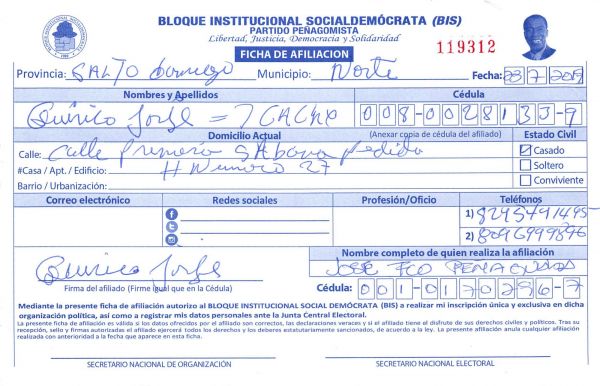 BLOQUE INSTITUCIONAL SOCIALDEMÓCRATA (BIS)
PARTIDO PEÑAGOMISTA
Libertad, Justicia, Democracia y Solidaridad
FICHA DE AFILIACION
119312
Provincia: Municipio: Norte Fecha:
Nombres y Apellidos Cédula
Quírico Jorge = 008-0028133-9
Domicilio Actual (Anexar copia de cédula del afiliado) Estado Civil
Calle: Calle primera Sabana perdida Casado
#Casa / Apt. / Edificio: # Numero 27 Soltero
Barrio / Urbanización: Conviviente
Correo electrónico Redes sociales Profesión/Oficio Teléfonos
1) 8295491495
2) 8096999896
Quírico Jorge Nombre completo de quien realiza la afiliación
JOSE FCO
Firma del afiliado (Firme igual que en la Cédula) Cédula: 001-0170296-7
Mediante la presente ficha de afiliación autorizo al BLOQUE INSTITUCIONAL SOCIAL DEMÓCRATA (BIS) a realizar mi inscripción única y exclusiva en dicha
organización política, así como a registrar mis datos personales ante la Junta Central Electoral.
La presente ficha de afiliación es válida si los datos ofrecidos por el afiliado son correctos, las declaraciones veraces y si el afiliado tiene el disfrute de sus derechos civiles y políticos. Tras su
recepción, sello y firmas autorizadas el afiliado ejercerá todos los derechos y los deberes estatutariamente sancionados, de acuerdo a la ley. La presente afiliación anula cualquier afiliación
realizada con anterioridad a la fecha que aparece en esta ficha.
SECRETARIO NACIONAL DE ORGANIZACIÓN SECRETARIO NACIONAL ELECTORAL